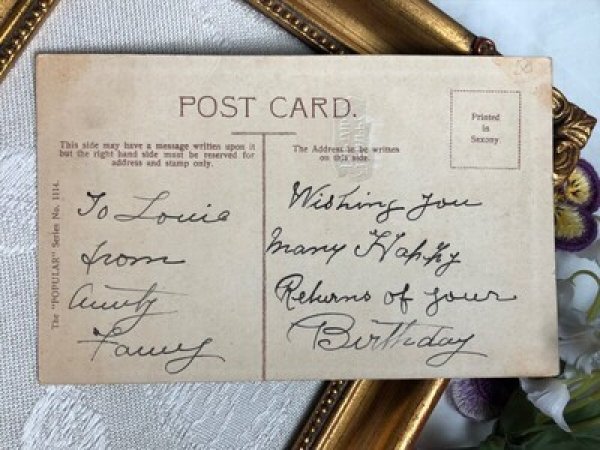 POST CARD.
This side may have a message written upon it
but the right hand side must be reserved for
address and stamp only.
The Address to be written
on this side.
Printed
in
Saxony
The "POPULAR" Series No. 1114.
To Louie
from
Aunty
Fanny
Wishing you
Many Happy
Returns of your
Birthday